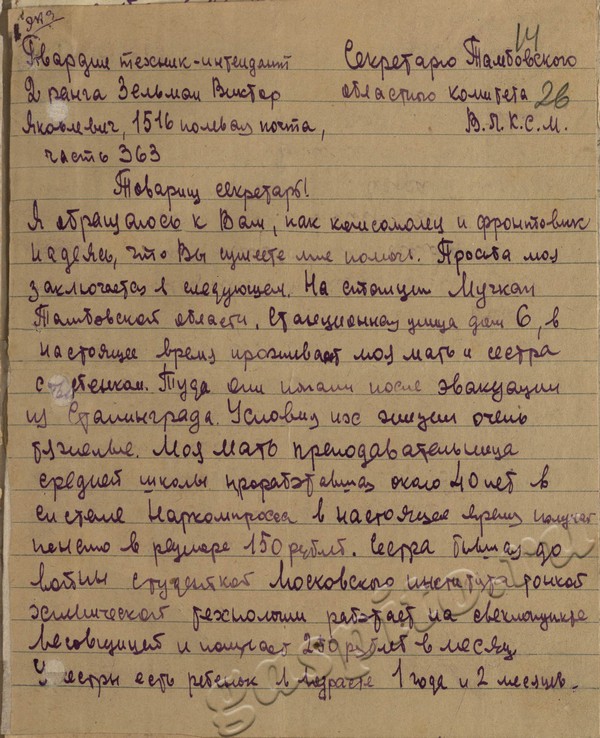 14
Гвардии техник-интендант Секретарю Тамбовского
2 ранга Зельман Виктор областного комитета 26
Яковлевич, 1516 полевая почта, В.Л.К.С.М.
часть 363
Товарищ секретарь!
Я обращаюсь к Вам, как комсомолец и фронтовик
надеясь, что Вы сумеете мне помочь. Просьба моя
заключается в следующем. На станции Мучкап
Тамбовской области, Станционная улица дом 6, в
настоящее время проживает моя мать и сестра
с ребенком. Туда они попали после эвакуации
из Сталинграда. Условия их жизни очень
тяжелые. Моя мать преподавательница
средней школы проработавшая около 40 лет в
системе Наркомпроса в настоящее время получает
пенсию в размере 150 рублей. Сестра бывшая до
войны студенткой Московского института тонкой
химической технологии работает на свеклопункте
весовщицей и получает 250 рублей в месяц.
У сестры есть ребенок в возрасте 1 года и 2 месяцев.